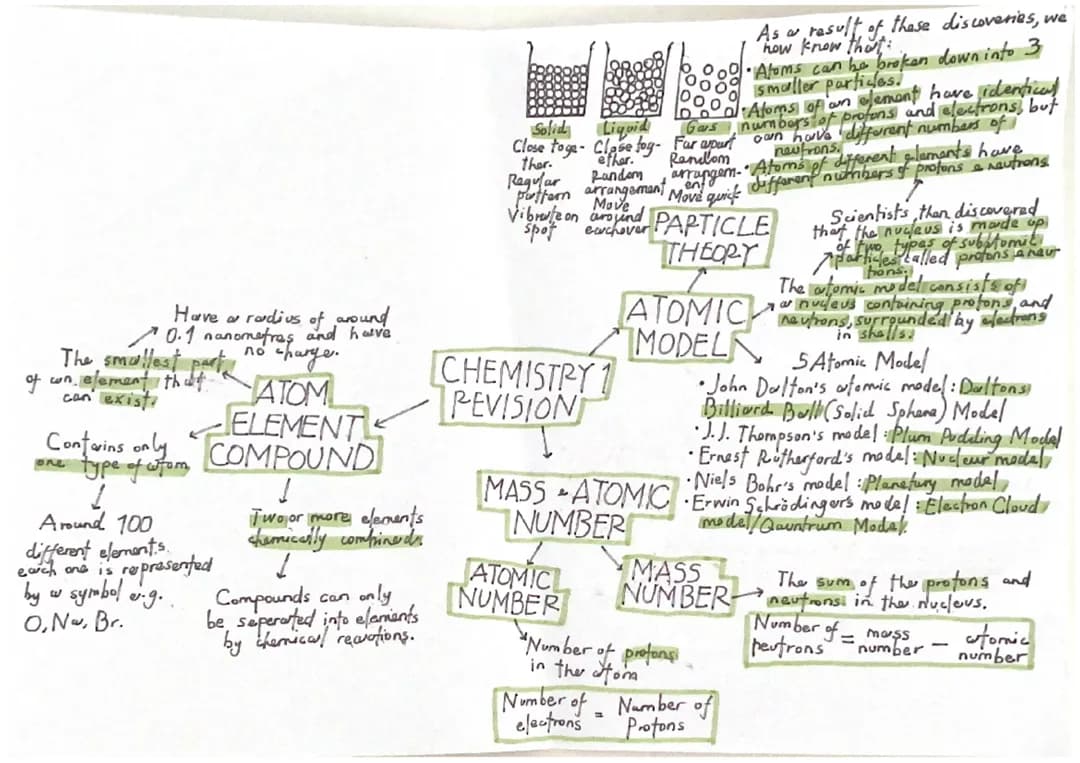 As a result of these discoveries, we
now know that:
• Atoms can be broken down into 3
smaller particles.
• Atoms of an element have identical
numbers of protons and electrons, but
can have different numbers of
neutrons.
• Atoms of different elements have
different numbers of protons & neutrons
Solid
Close toge-
ther.
Regular
pattern
Vibrate on
spot
Liquid
Close tog-
ether.
Random
arrangement
Move
around
eachover
Gas
Far apart
Random
arrangem-
ent
Move quick
PARTICLE
THEORY
Scientists then discovered
that the nucleus is made up
of two types of subatomic
particles called protons & neu-
trons.
The atomic model consists of
a nucleus containing protons and
neutrons, surrounded by electrons
in shells.
ATOMIC
MODEL
5 Atomic Model
• John Dalton's atomic model: Daltons
Billiard Ball (Solid Sphere) Model
• J.J. Thompson's model: Plum Pudding Model
• Ernest Rutherford's model: Nuclear model
• Niels Bohr's model: Planetary model
• Erwin Schrödinger's model: Electron Cloud
model/Qauntrum Model.
CHEMISTRY 1
REVISION
Have a radius of around
0.1 nanometres and have
no charge.
The smallest part
of an element that
can exist.
ATOM
ELEMENT
COMPOUND
Contains only
one type of atom
Around 100
different elements.
each one is represented
by a symbol e.g.
O, Na, Br.
Two or more elements
chemically combined.
Compounds can only
be seperated into elements
by chemical reactions.
MASS & ATOMIC
NUMBER
ATOMIC
NUMBER
Number of protons
in the atom
Number of electrons = Number of Protons
MASS
NUMBER
The sum of the protons and
neutrons in the nucleus.
Number of neutrons = mass number - atomic number